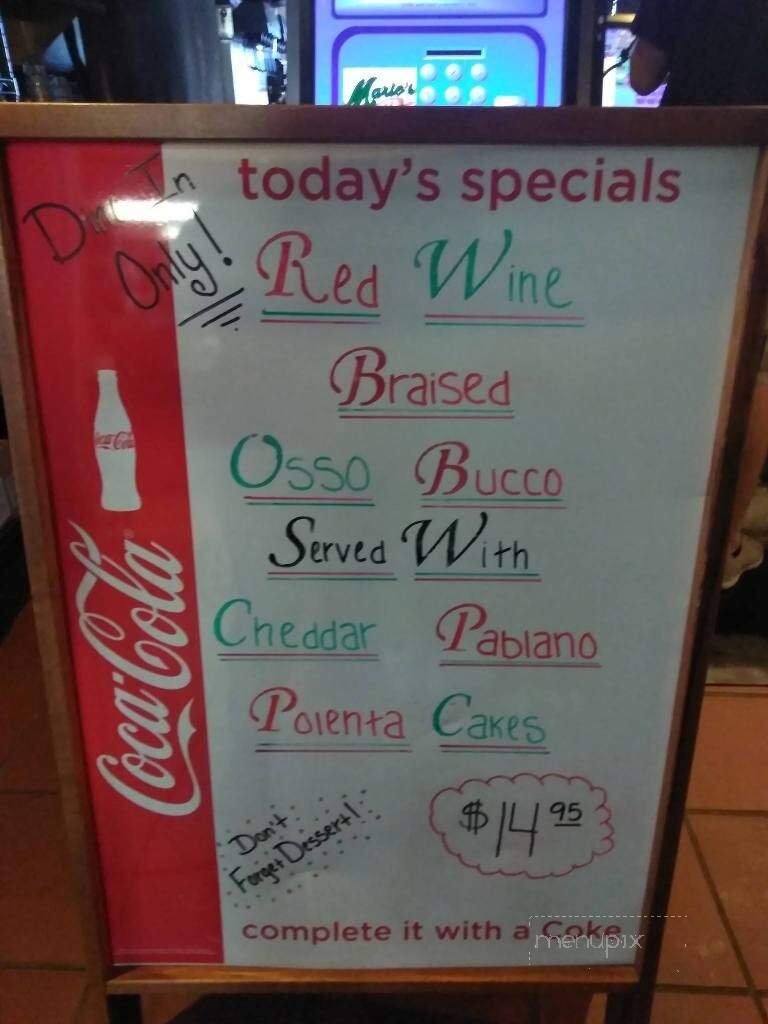 Mario's
today's specials
Dine In
Only!
Red Wine
Braised
Osso Bucco
Served With
Cheddar Pablano
Polenta Cakes
Don't
Forget Dessert!
$14.95
Coca-Cola
Coca-Cola
complete it with a Coke
menupix